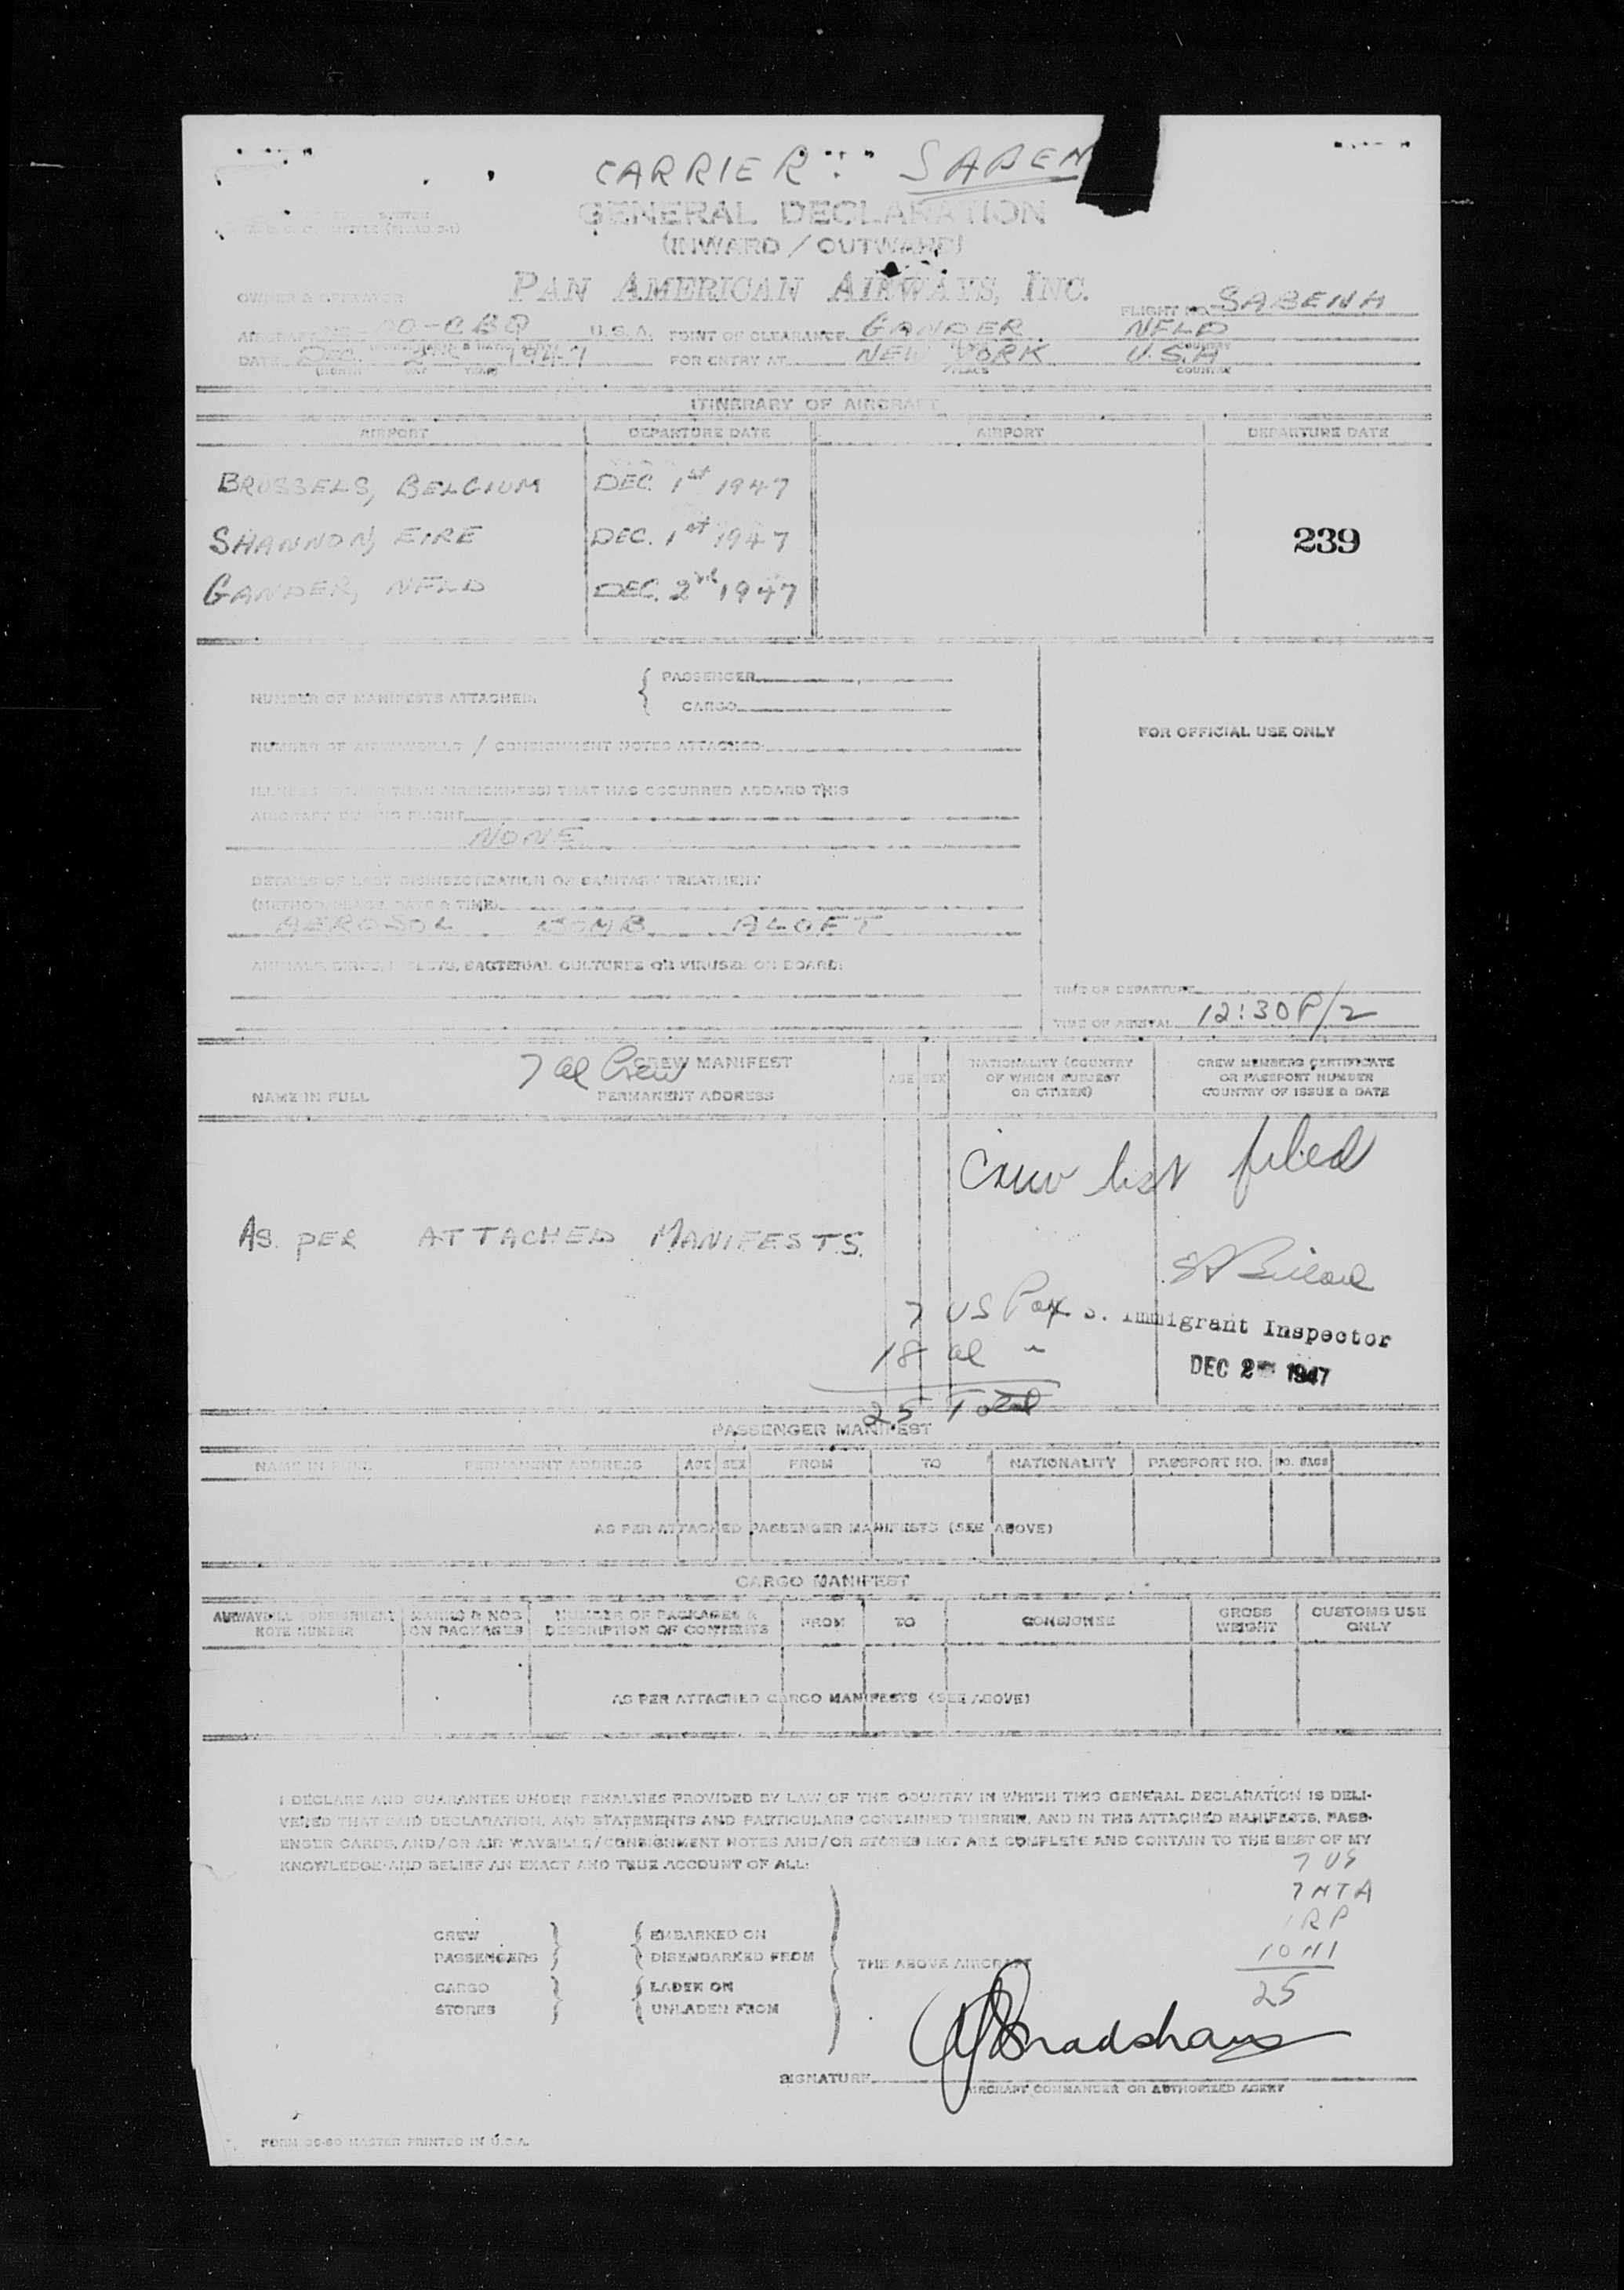 CARRIER: SABEN
GENERAL DECLARATION
(INWARD / OUTWARD)
OWNER & OPERATOR PAN AMERICAN AIRWAYS, INC. FLIGHT NO. SABENA
OO-CBQ U.S.A. POINT OF CLEARANCE GANDER NFLD
DATE DEC. 1947 FOR ENTRY AT NEW YORK U.S.A
PLACE COUNTRY
ITINERARY OF AIRCRAFT
AIRPORT DEPARTURE DATE AIRPORT DEPARTURE DATE
BRUSSELS, BELGIUM DEC. 1st 1947
SHANNON, EIRE DEC. 1st 1947
239
GANDER, NFLD DEC. 2nd 1947
NUMBER OF MANIFESTS ATTACHED: { PASSENGER
CARGO
FOR OFFICIAL USE ONLY
NUMBER OF AIRWAYBILLS / CONSIGNMENT NOTES ATTACHED:
ILLNESS (OTHER THAN AIRSICKNESS) THAT HAS OCCURRED ABOARD THIS
AIRCRAFT DURING FLIGHT
NONE
DETAILS OF LAST DISINSECTIZATION OR SANITARY TREATMENT
(METHOD, PLACE, DATE & TIME)
AEROSOL BOMB ALOFT
ANIMALS, BIRDS, INSECTS, BACTERIAL CULTURES OR VIRUSES ON BOARD:
TIME OF DEPARTURE
TIME OF ARRIVAL 12:30 P/2
7 al Crew
CREW MANIFEST
NAME IN FULL PERMANENT ADDRESS AGE SEX NATIONALITY (COUNTRY OF WHICH SUBJECT OR CITIZEN) CREW MEMBERS CERTIFICATE OR PASSPORT NUMBER COUNTRY OF ISSUE & DATE
Crew list filed
AS PER ATTACHED MANIFESTS.
7 US Pax S. Immigrant Inspector
18 al "
DEC 2 1947
25 Total
PASSENGER MANIFEST
NAME IN FULL PERMANENT ADDRESS AGE SEX FROM TO NATIONALITY PASSPORT NO. NO. BAGS
AS PER ATTACHED PASSENGER MANIFESTS (SEE ABOVE)
CARGO MANIFEST
AIRWAYBILL CONSIGNMENT NOTE NUMBER MARKS & NOS ON PACKAGES NUMBER OF PACKAGES & DESCRIPTION OF CONTENTS FROM TO CONSIGNEE GROSS WEIGHT CUSTOMS USE ONLY
AS PER ATTACHED CARGO MANIFESTS (SEE ABOVE)
I DECLARE AND GUARANTEE UNDER PENALTIES PROVIDED BY LAW OF THE COUNTRY IN WHICH THIS GENERAL DECLARATION IS DELI-
VERED THAT SAID DECLARATION, AND STATEMENTS AND PARTICULARS CONTAINED THEREIN, AND IN THE ATTACHED MANIFESTS, PASS-
ENGER CARDS, AND/OR AIR WAYBILLS/CONSIGNMENT NOTES AND/OR STORES LIST ARE COMPLETE AND CONTAIN TO THE BEST OF MY
KNOWLEDGE AND BELIEF AN EXACT AND TRUE ACCOUNT OF ALL:
7 US
7 NTA
1 RP
10 NI
25
CREW } { EMBARKED ON
PASSENGERS } { DISEMBARKED FROM
THE ABOVE AIRCRAFT
CARGO } { LADEN ON
STORES } { UNLADEN FROM
Bradshaw
SIGNATURE
AIRCRAFT COMMANDER OR AUTHORIZED AGENT
FORM MASTER PRINTED IN U.S.A.